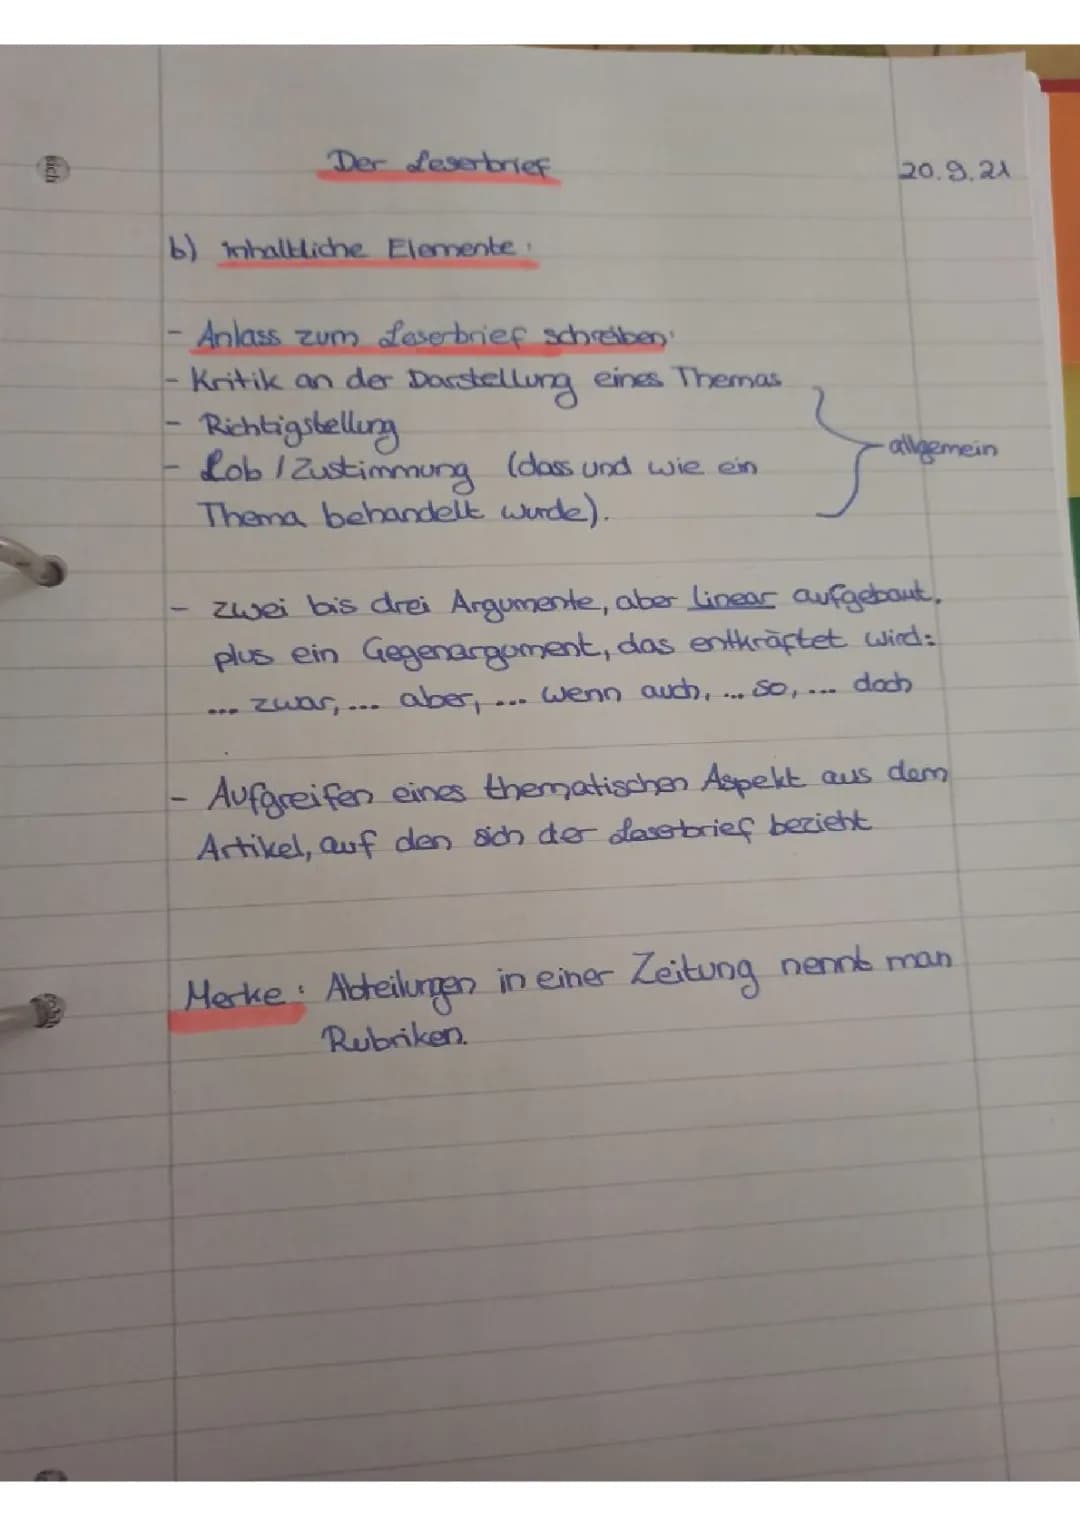 Der Leserbrief
20.9.21
b) inhaltliche Elemente:
- Anlass zum Leserbrief schreiben:
- Kritik an der Darstellung eines Themas
- Richtigstellung
- Lob / Zustimmung (dass und wie ein
Thema behandelt wurde).
allgemein
- zwei bis drei Argumente, aber linear aufgebaut,
plus ein Gegenargument, das entkräftet wird:
... zwar, ... aber, ... wenn auch, ... so, ... doch
- Aufgreifen eines thematischen Aspekt aus dem
Artikel, auf den sich der Leserbrief bezieht
Merke: Abteilungen in einer Zeitung nennt man
Rubriken.